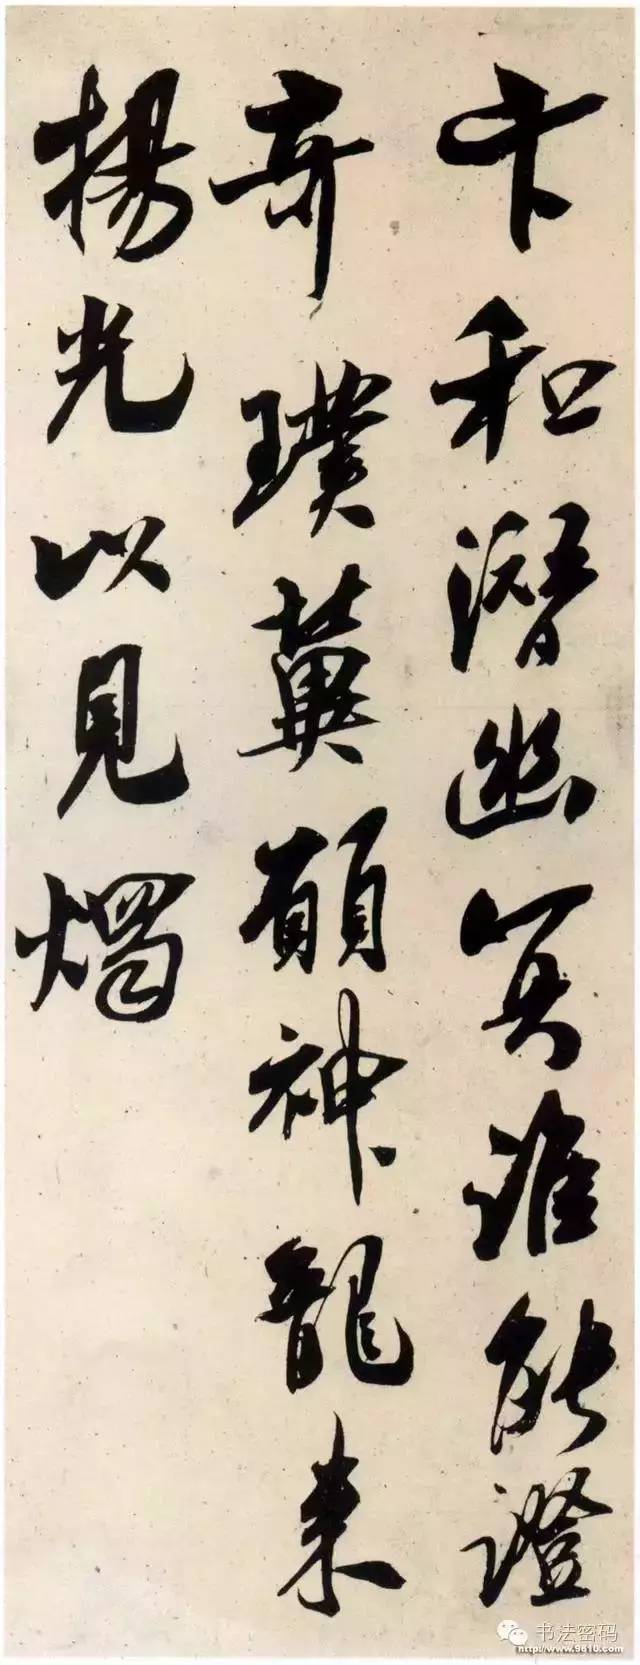 卞和潛幽冥誰能證
奇璞冀願神龍来
揚光以見燭
书法密码
http://www.9610.com